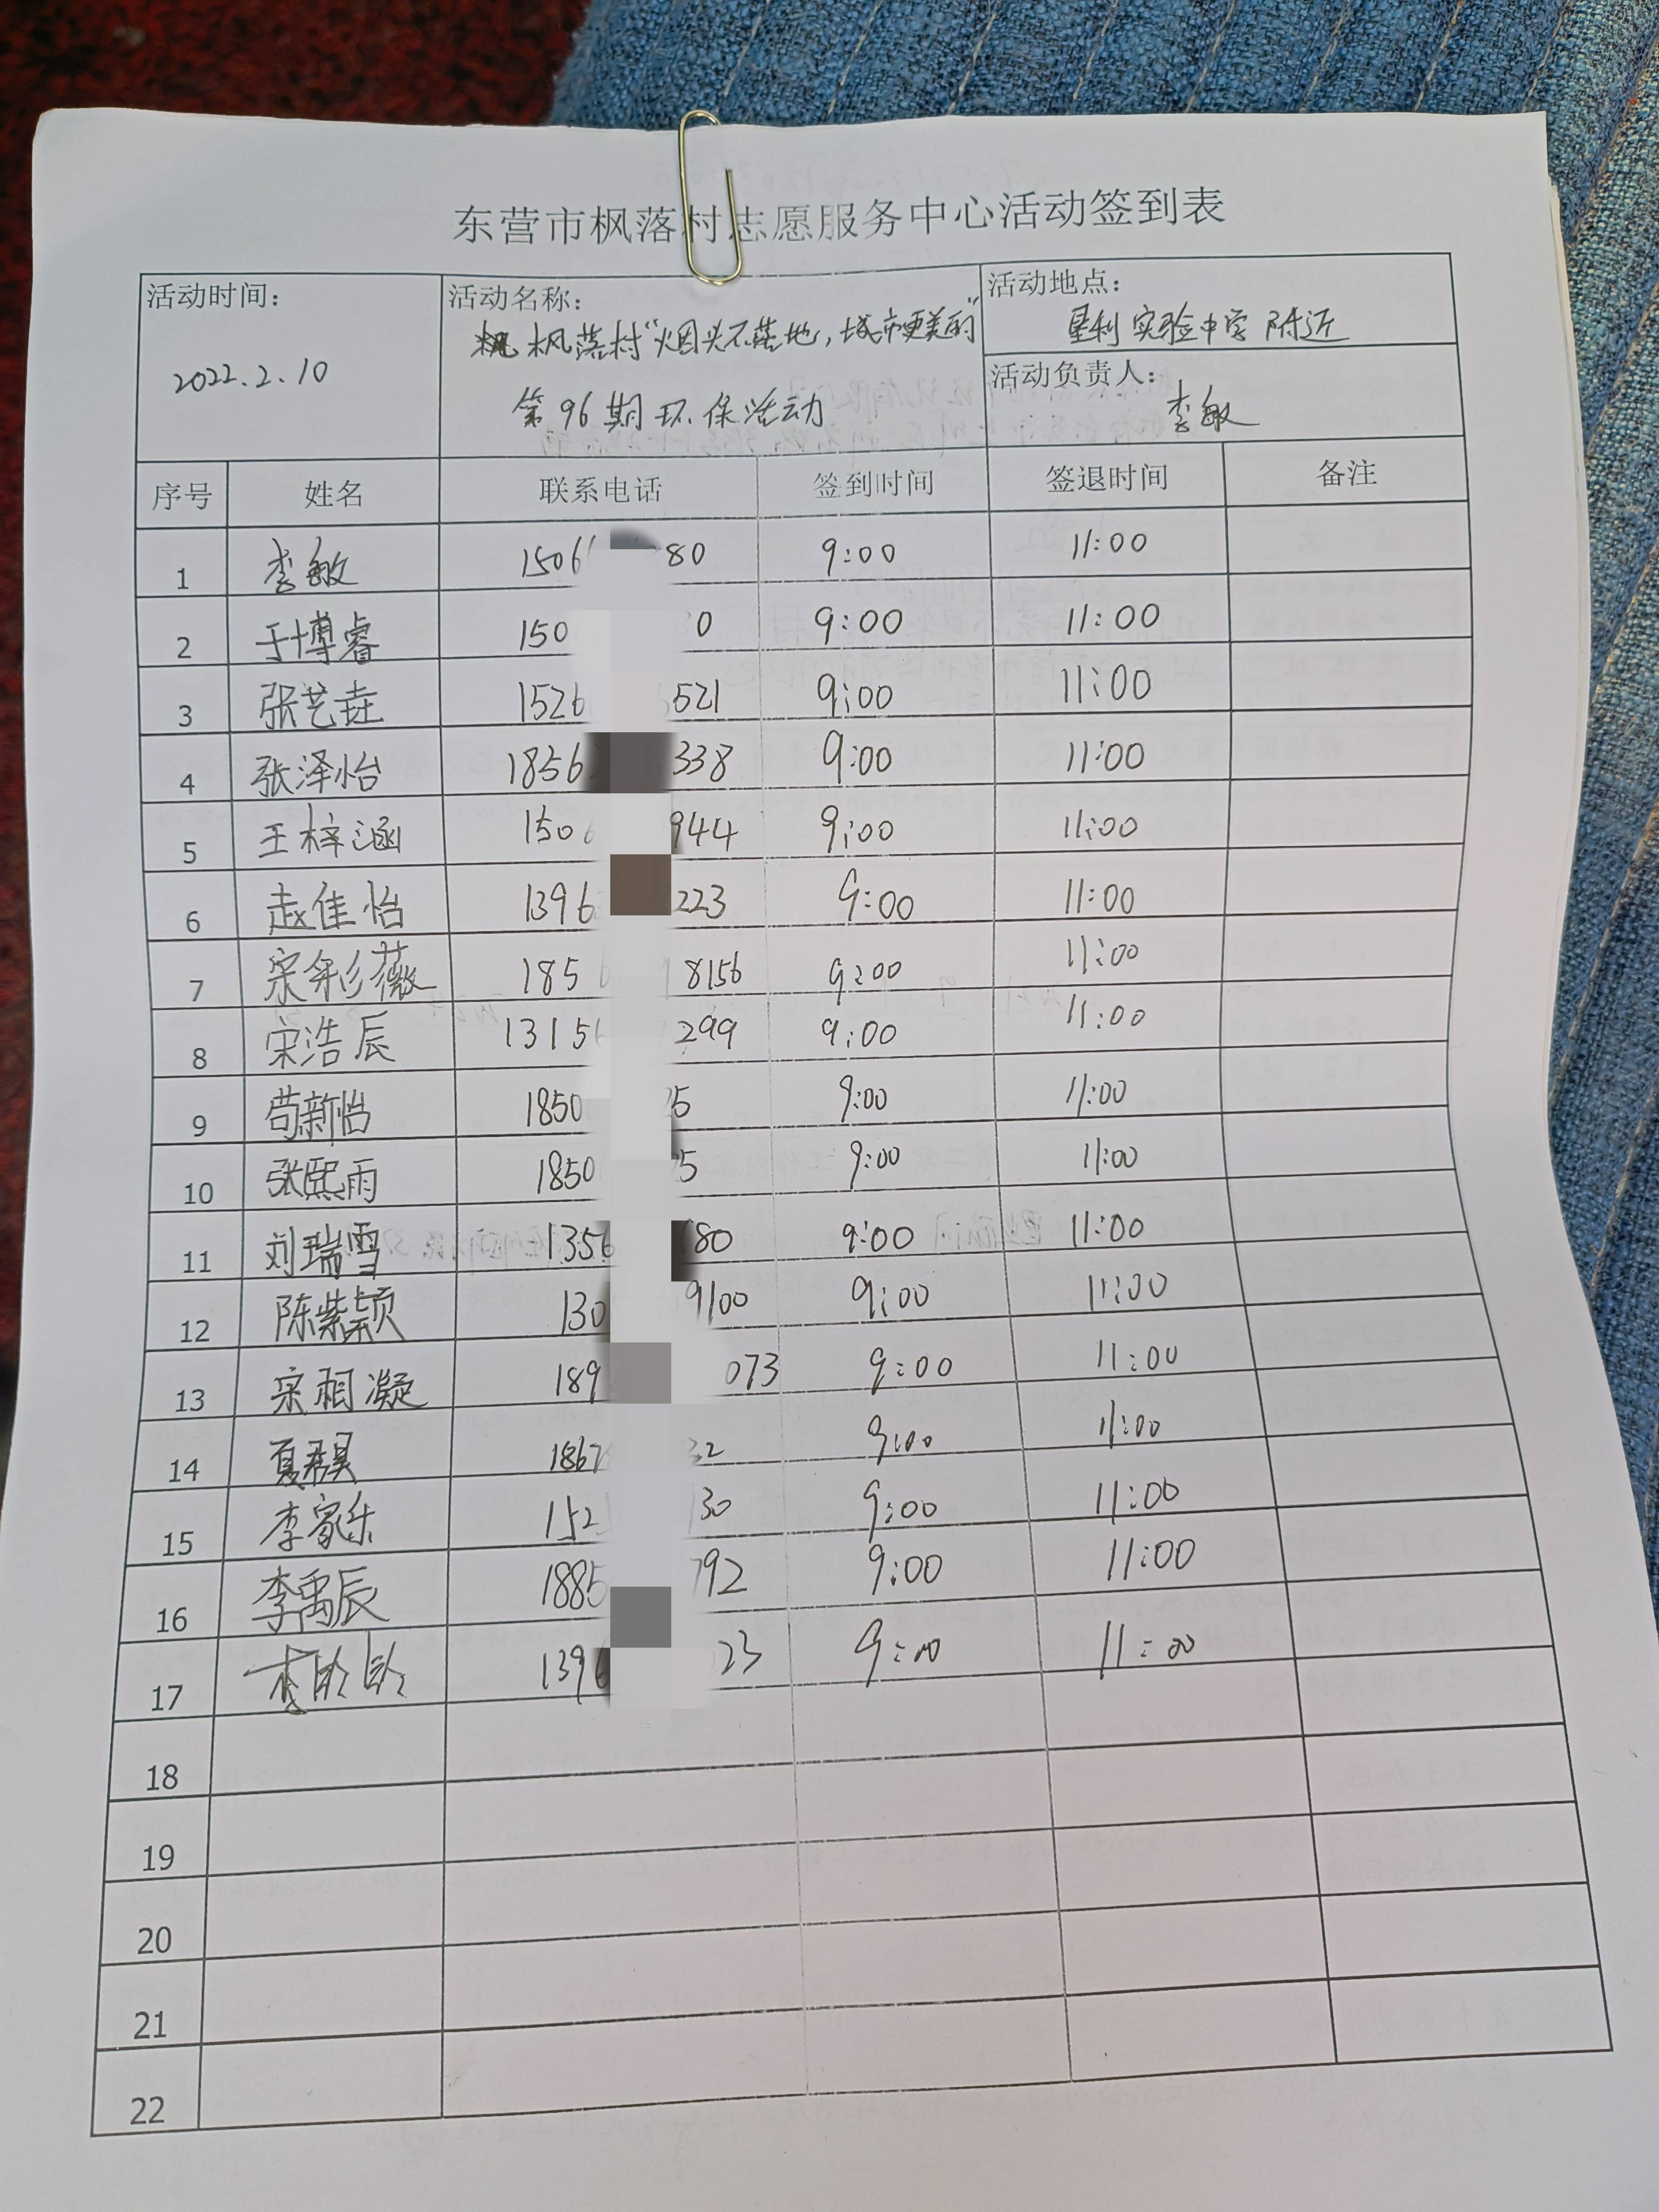 东营市枫落村志愿服务中心活动签到表
活动时间: 活动名称: 活动地点:
枫落村"烟头不落地,城市更美的" 垦利实验中学附近
2022.2.10 活动负责人:
第96期环保活动 李敏
序号 姓名 联系电话 签到时间 签退时间 备注
1 李敏 1506 80 9:00 11:00
2 于博睿 150 0 9:00 11:00
3 张艺垚 1526 521 9:00 11:00
4 张泽怡 1856 338 9:00 11:00
5 王梓涵 150 944 9:00 11:00
6 赵佳怡 1396 223 9:00 11:00
7 宋彩薇 185 8156 9:00 11:00
8 宋浩辰 1315 299 9:00 11:00
9 苟新怡 1850 5 9:00 11:00
10 张熙雨 1850 5 9:00 11:00
11 刘瑞雪 1356 80 9:00 11:00
12 陈紫颖 130 9100 9:00 11:00
13 宋相凝 189 073 9:00 11:00
14 1867 32 9:00 11:00
15 李家乐 152 130 9:00 11:00
16 李禹辰 1885 792 9:00 11:00
17 1396 23 9:00 11:00
18
19
20
21
22